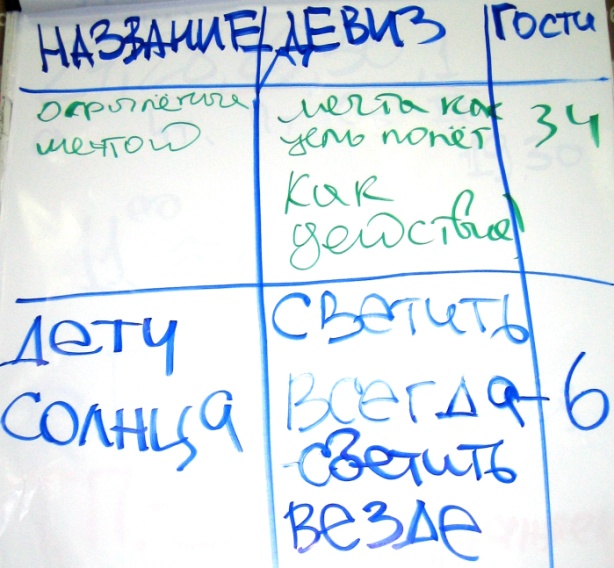 НАЗВАНИЕ ДЕВИЗ Гости
окрылённые мечта как 34
мечтой цель полёт
как
действие!
ДЕТИ СВЕТИТЬ
СОЛНЦА ВСЕГДА - 6
-СВЕТИТЬ
ВЕЗДЕ